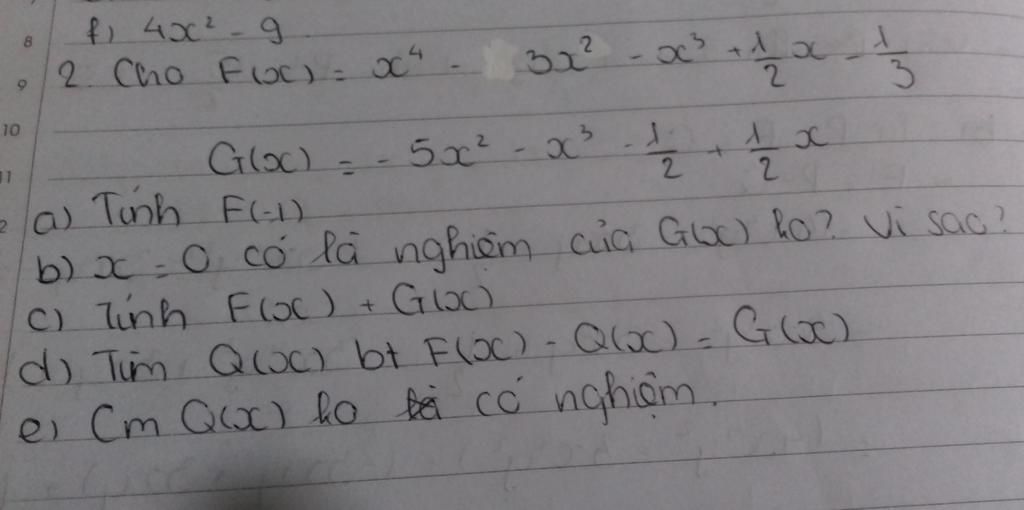 8
f) 4x² - 9
9
2. Cho F(x) = x⁴ - 3x² - x³ + 1/2 x - 1/3
10
G(x) = - 5x² - x³ - 1/2 + 1/2 x
11
a) Tính F(-1)
2
b) x = 0 có là nghiệm của G(x) ko? Vì sao?
c) Tính F(x) + G(x)
d) Tìm Q(x) bt F(x) - Q(x) = G(x)
e) Cm Q(x) ko có nghiệm.